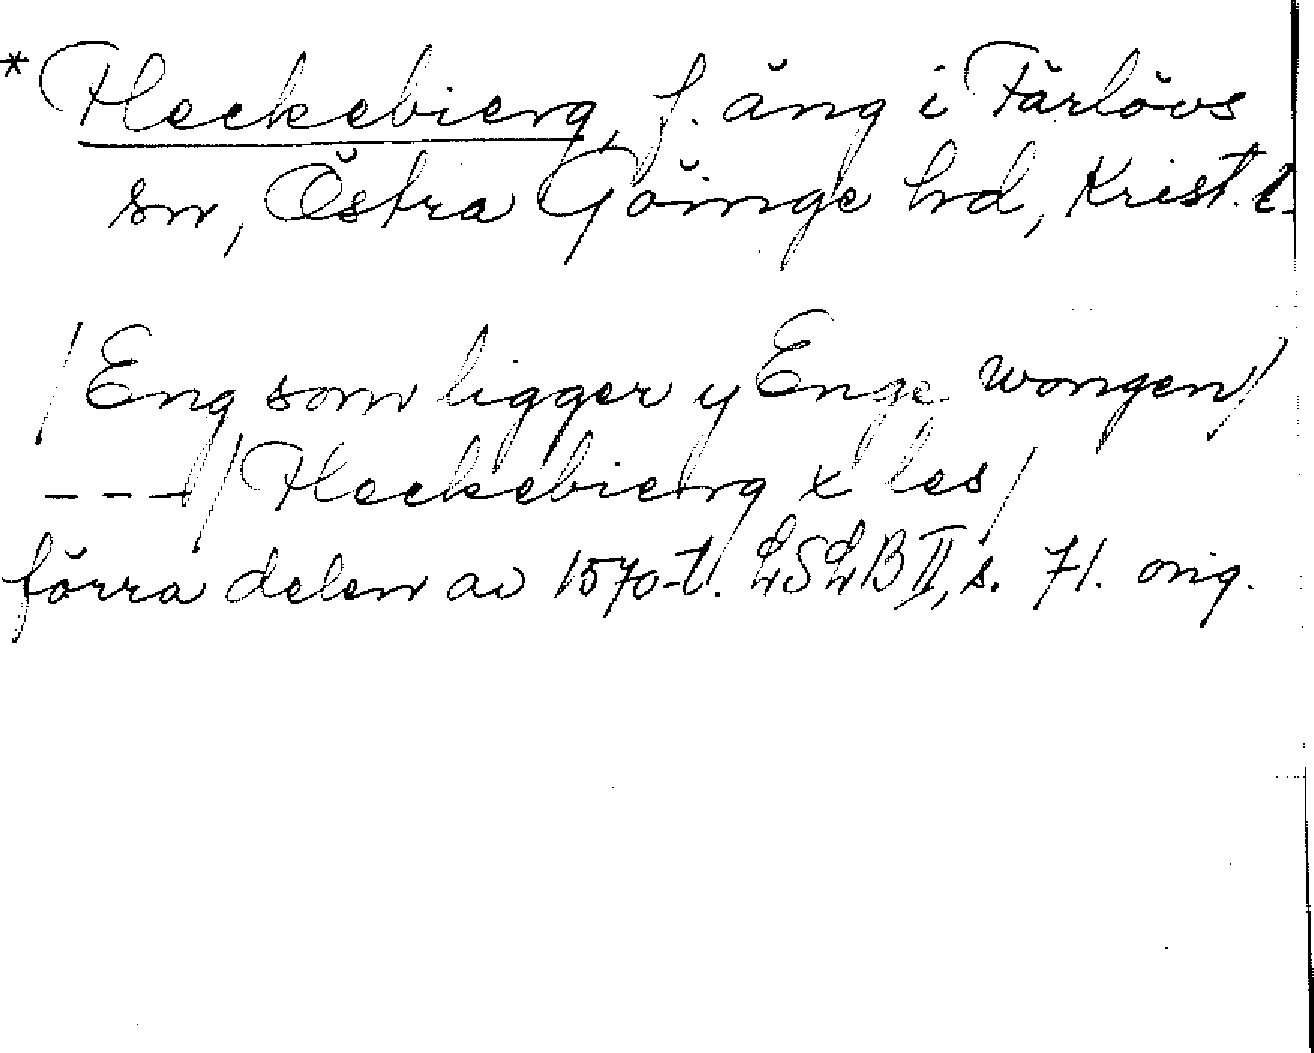 * Fleckebierg, f. äng i Färlövs
sn, Östra Göinge hd, Krist. l.
/Eng som ligger y Enge wongen/
---/ /Fleckebierg x les/
förra delen av 1570-t. LSLB II, s. 71. orig.